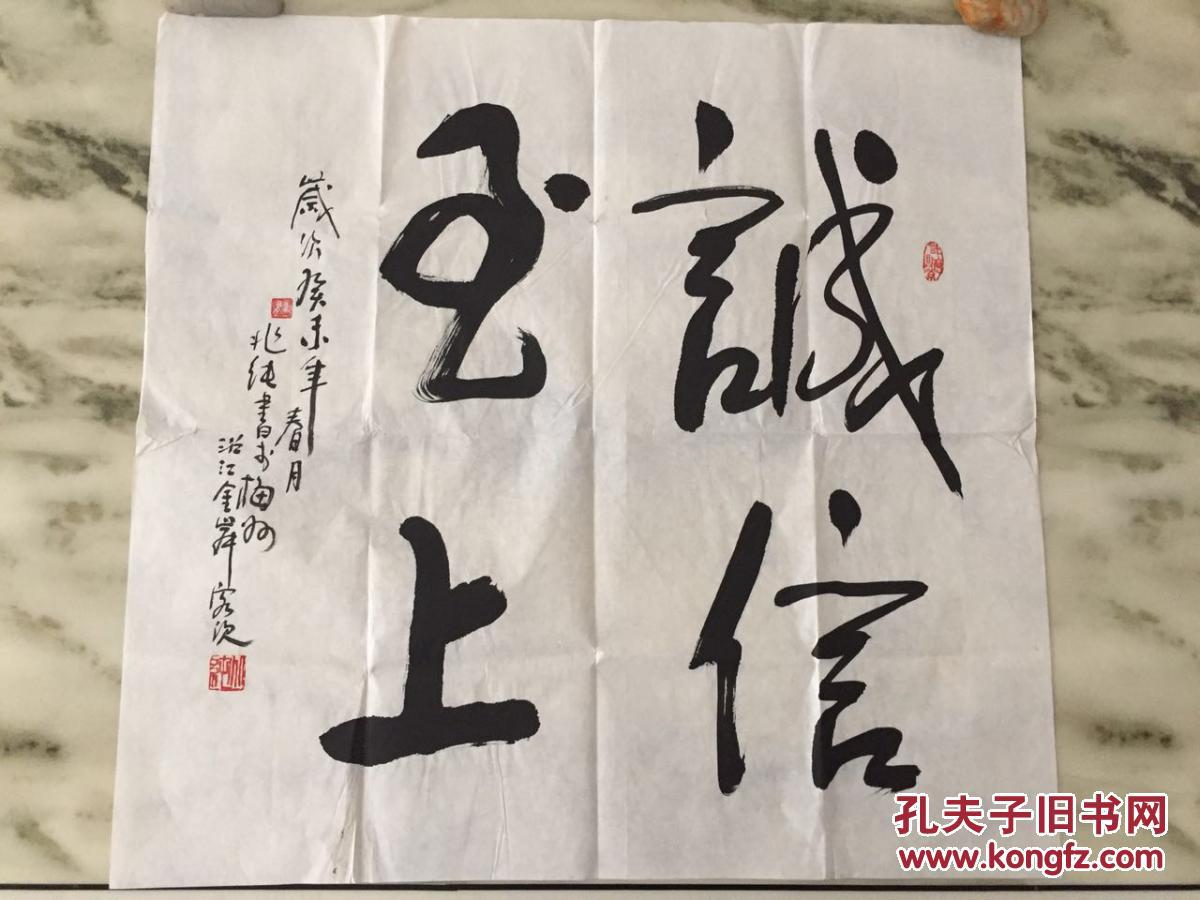 誠信
至上
歲次癸未年春月
兆纯書於梅州
沿江金岸客次
孔夫子旧书网
www.kongfz.com